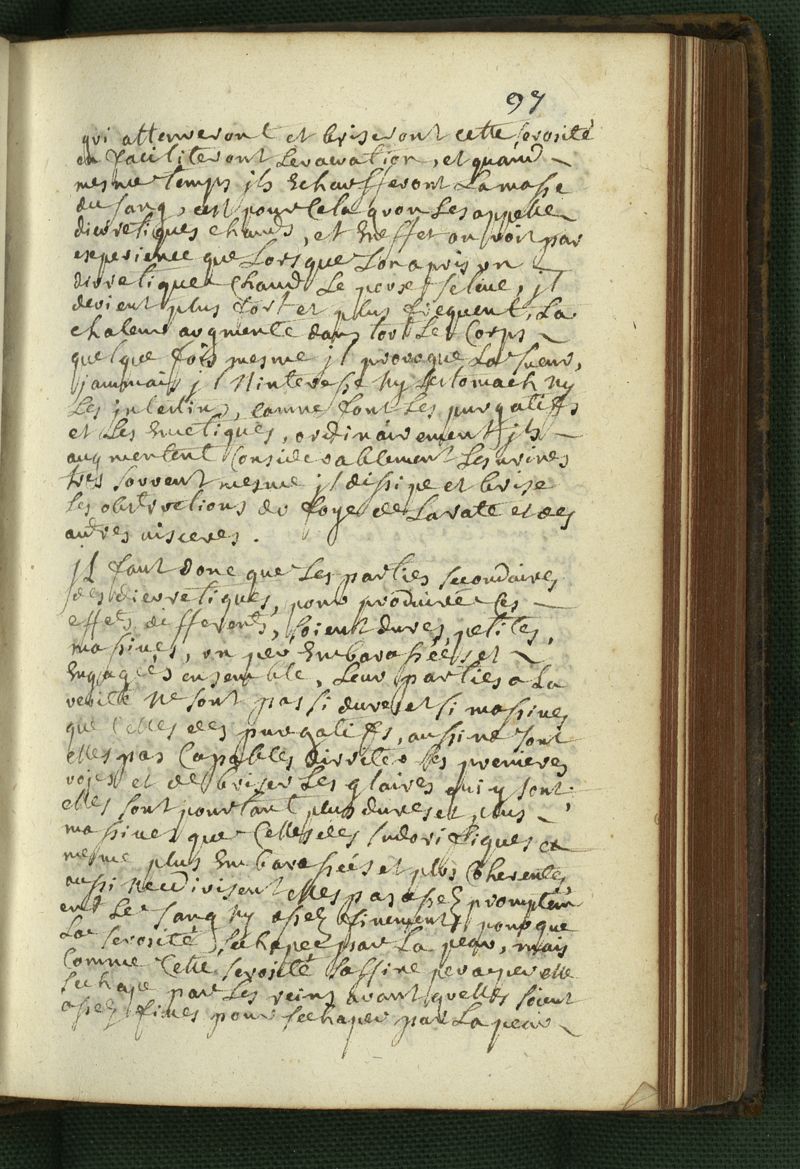 97
qui attenueront et briseront cette serosité
en faciliteront Levacuation, et quand
mesme temps jls Echaufferont La masse
du sang, cest pour Cela qvon Les appelle
diuretiques chauds, et Eneffet on voit par
experience que Lors que Lon a pris vn
diuretique Chaud Le pouse seleue, jl
devient plus fort et plus frequent, La
chaleur augmente dans tout Le Corps
quelque fois mesme jl provoque La sueur,
jammais jl Ninteresse Ny Lestomach Ny
Les jntestins, comme font Les purgatifs
et Les Emetiques, ordinairement jls
augmentent Considerablement Les urines
tres souvent mesme jl dissipe et brise
Les obstructions du foye de La rate et des
autres visceres.
jl faut donc que Les parties secondaires
des diuretiques, pour produire Ces
effets differents, soient dures, petites,
massives, vn peu Embarassées et
Engagées ensemble, Leur parties a La
verité Ne sont pas si dures et si massives
que Celles des purgatifs, aussi ne sont
elles pas Capables dirriter Les premieres
voyes et de briser Les glaires qui y sont;
elles sont pourtant plus dures et plus
massives que Celles des sudorifiques et
mesme plus Embarassées et plus Coherentes
aussi Ne divisent elles pas assez promptem
ent Le sang Ny assez finement, pour que
La serosité sechappe par La peau, mais
Comme Cette serosité saffine peu a peu elle
sechape par Les reins avant quelles soient
assez fines pour sechaper par La peau